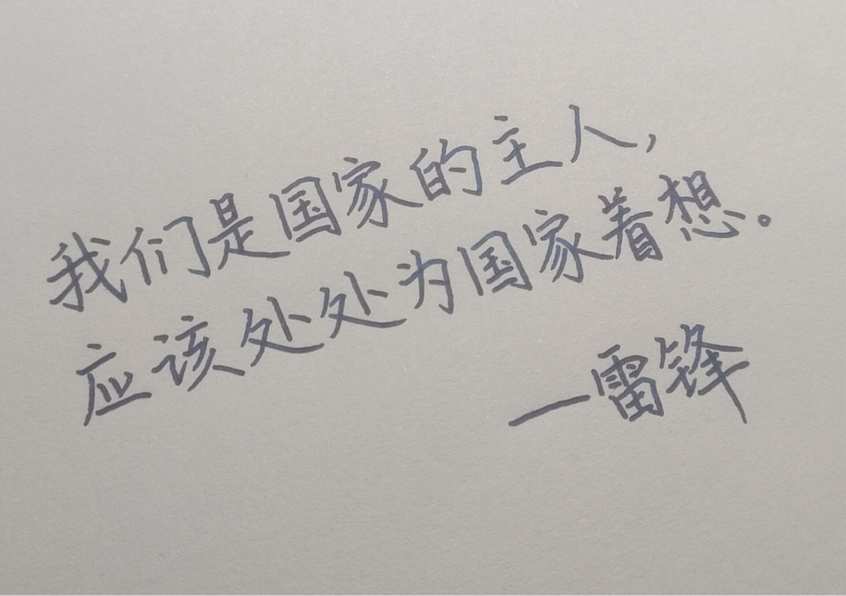 我们是国家的主人,
应该处处为国家着想。
—雷锋